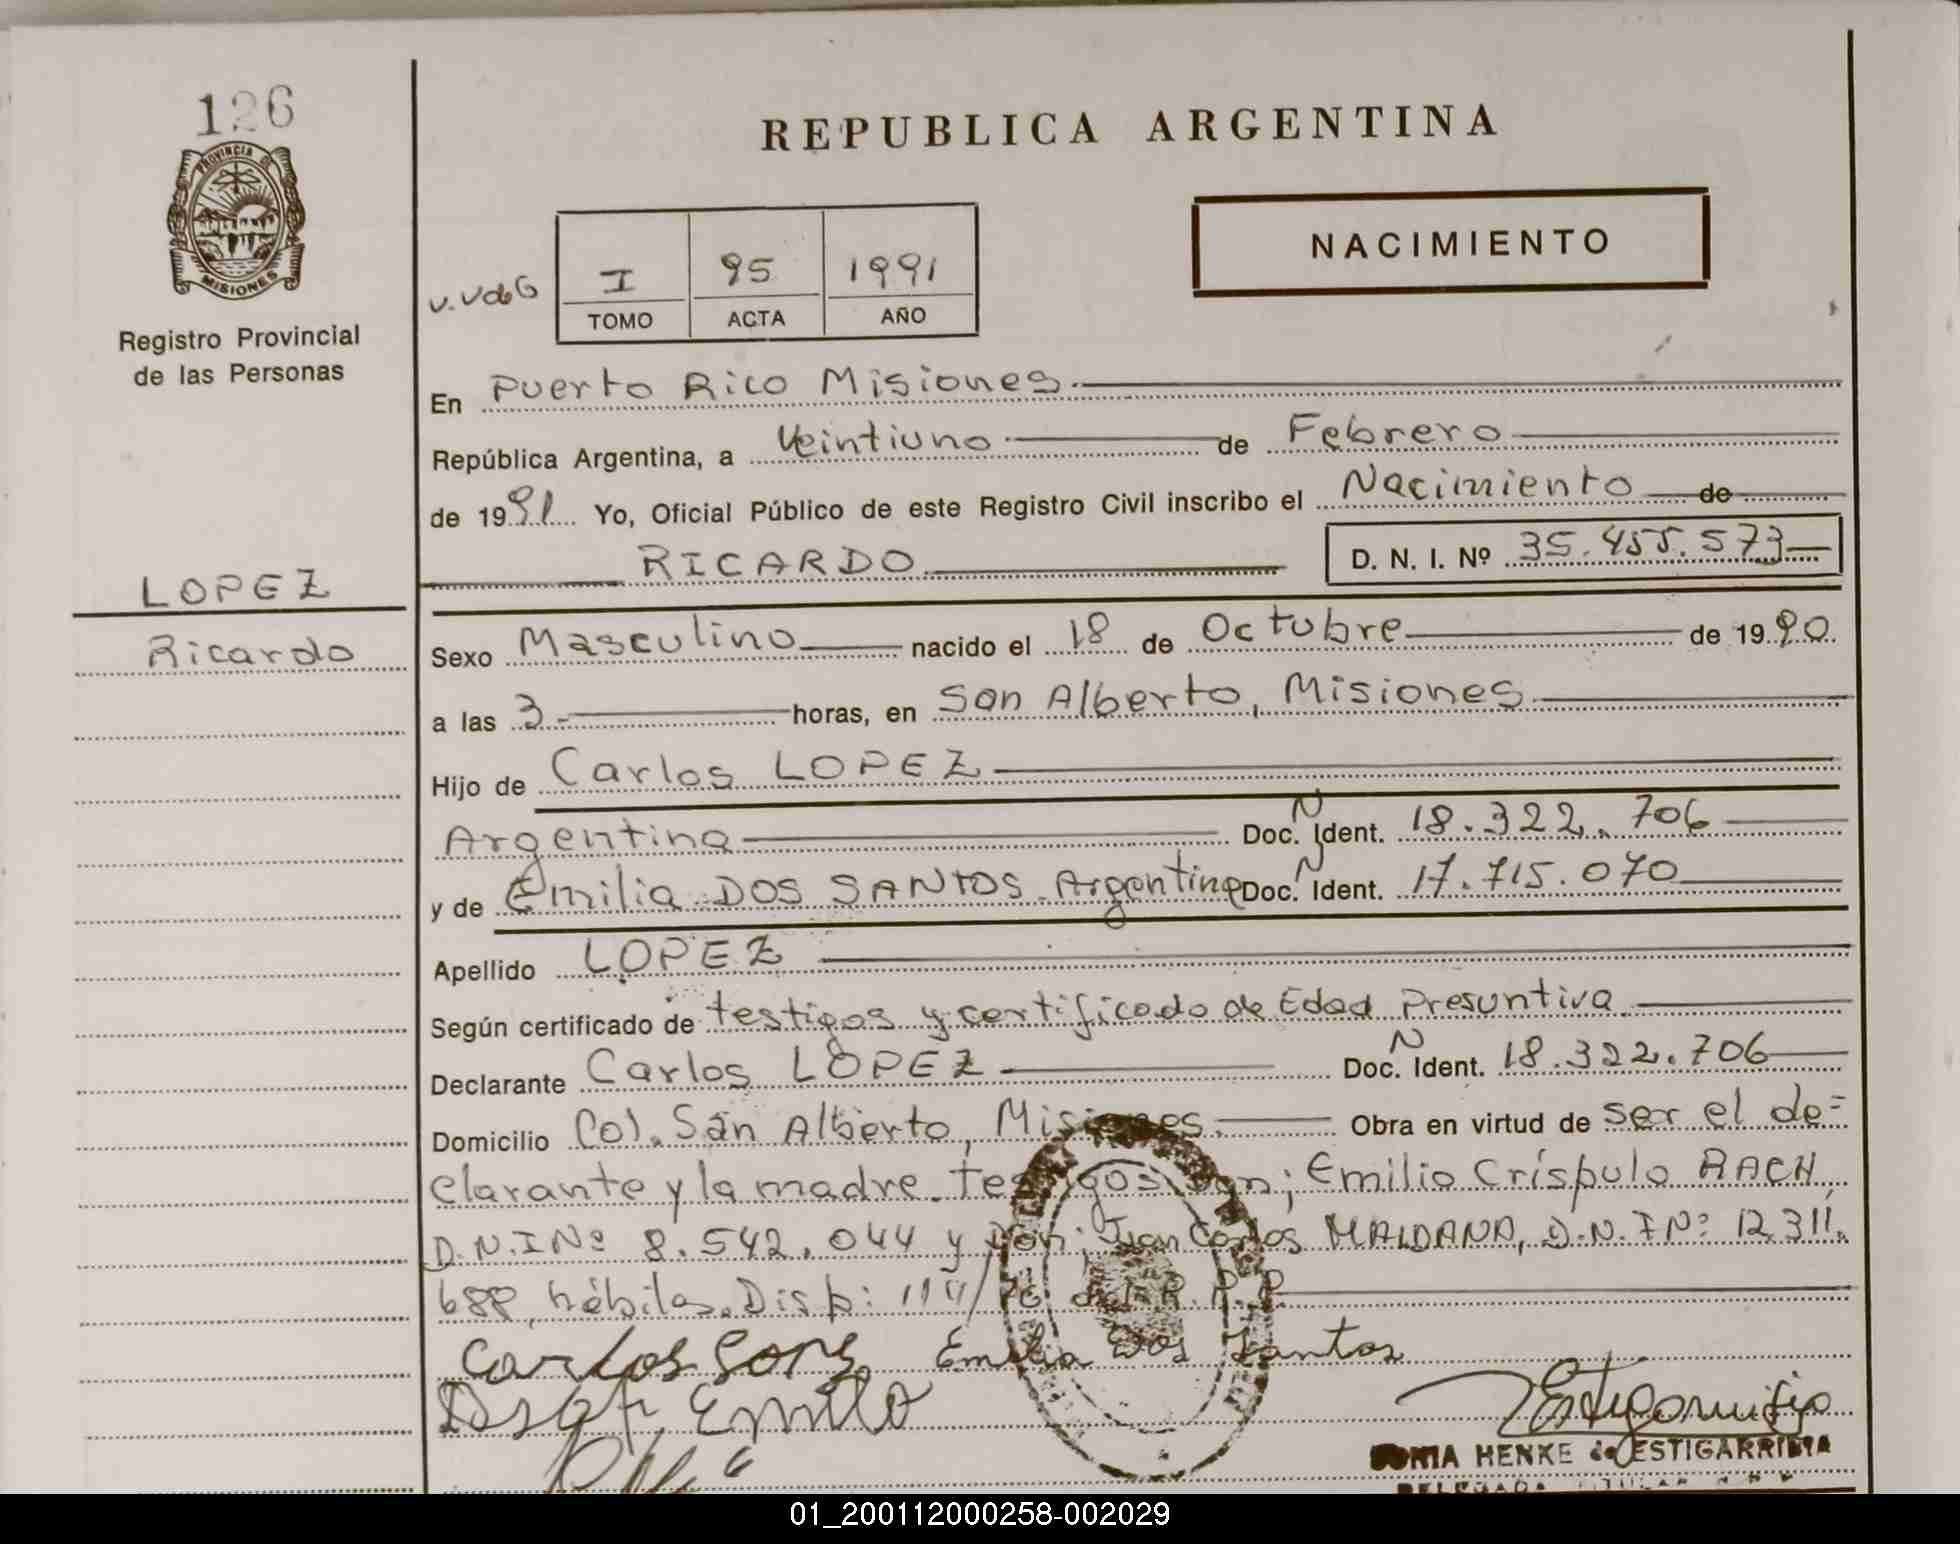 126
PROVINCIA DE
MISIONES
Registro Provincial
de las Personas
REPUBLICA ARGENTINA
NACIMIENTO
I 95 1991
TOMO ACTA AÑO
En Puerto Rico Misiones.
República Argentina, a Veintiuno de Febrero
de 1991 Yo, Oficial Público de este Registro Civil inscribo el Nacimiento de
RICARDO D. N. I. Nº 35.455.573
LOPEZ
Ricardo
Sexo Masculino nacido el 18 de Octubre de 1990
a las 3.- horas, en San Alberto, Misiones
Hijo de Carlos LOPEZ
Argentina Doc. N Ident. 18.322.706
y de Emilia DOS SANTOS Argentina Doc. N Ident. 17.715.070
Apellido LOPEZ
Según certificado de testigos y certificado de Edad Presuntiva.
Declarante Carlos LOPEZ Doc. N Ident. 18.322.706
Domicilio Col. San Alberto, Misiones. Obra en virtud de ser el de=
clarante y la madre. Testigos Don; Emilio Críspulo RACH,
D.N.I Nº 8.542.044 y Don; Juan Carlos MALDANA, D.N.I Nº: 12.311.
688, hábiles. Disp: /76 del R.P.P.
Carlos
Emilia Dos Santos
Emilio
SONIA HENKE de ESTIGARRIBIA
DELEGADA TITULAR
01_200112000258-002029